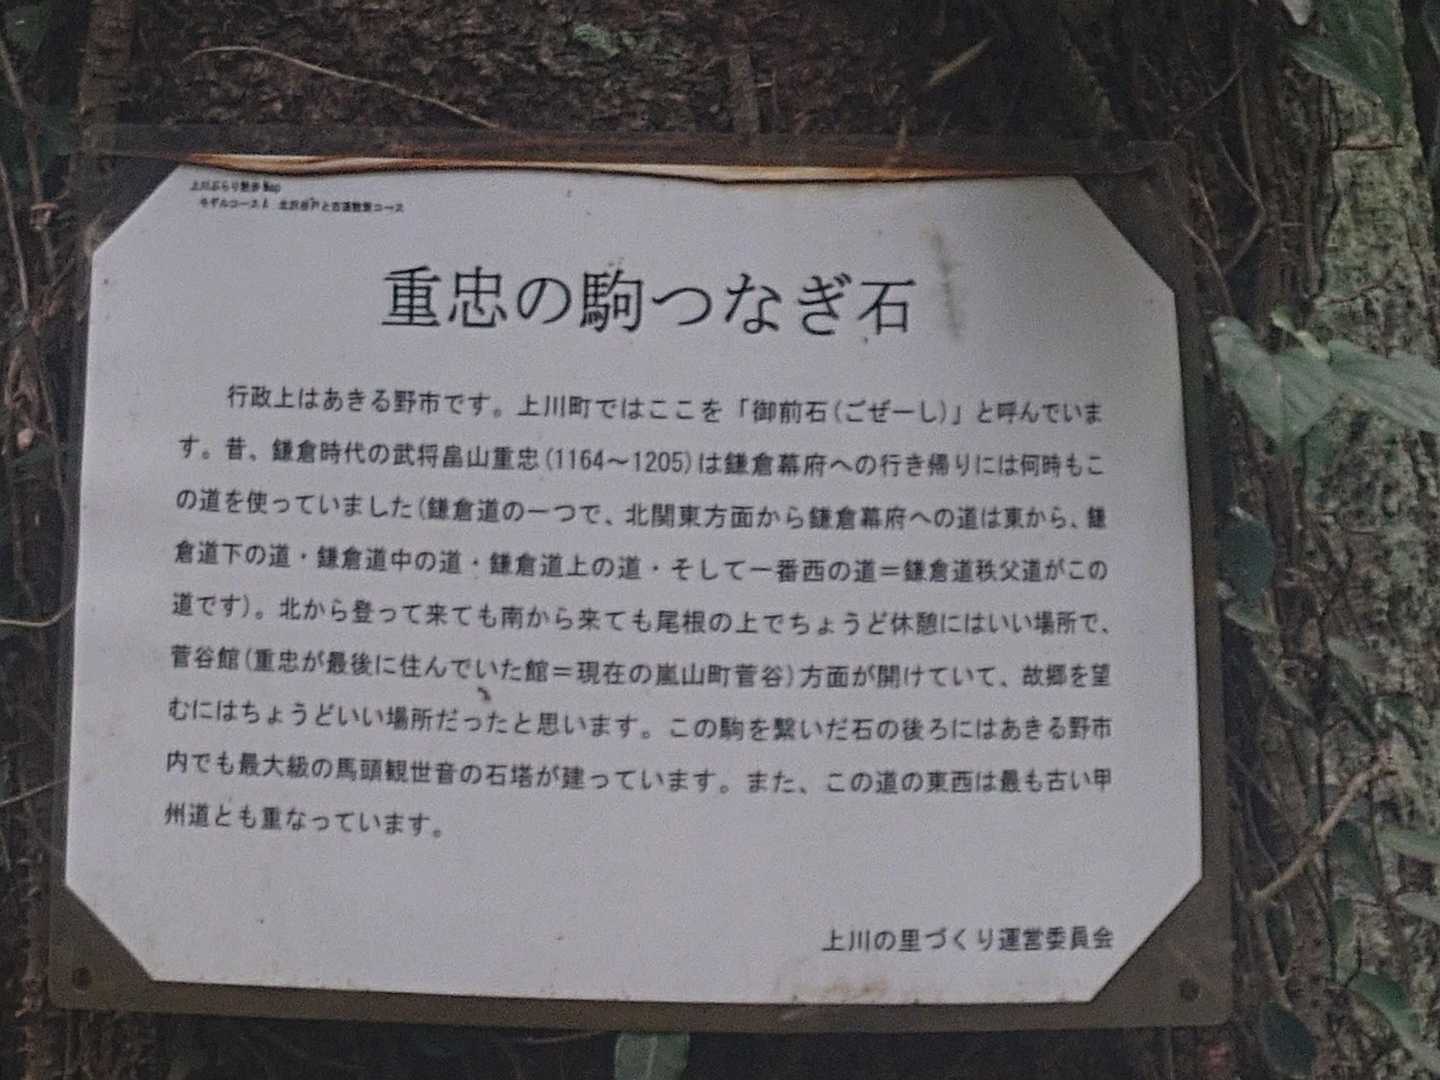 上川ぶらり散歩Map
モデルコース1 北沢谷戸と古道散策コース
重忠の駒つなぎ石
行政上はあきる野市です。上川町ではここを「御前石(ごぜーし)」と呼んでいま
す。昔、鎌倉時代の武将畠山重忠(1164～1205)は鎌倉幕府への行き帰りには何時もこ
の道を使っていました(鎌倉道の一つで、北関東方面から鎌倉幕府への道は東から、鎌
倉道下の道・鎌倉道中の道・鎌倉道上の道・そして一番西の道＝鎌倉道秩父道がこの
道です)。北から登って来ても南から来ても尾根の上でちょうど休憩にはいい場所で、
菅谷館(重忠が最後に住んでいた館＝現在の嵐山町菅谷)方面が開けていて、故郷を望
むにはちょうどいい場所だったと思います。この駒を繋いだ石の後ろにはあきる野市
内でも最大級の馬頭観世音の石塔が建っています。また、この道の東西は最も古い甲
州道とも重なっています。
上川の里づくり運営委員会